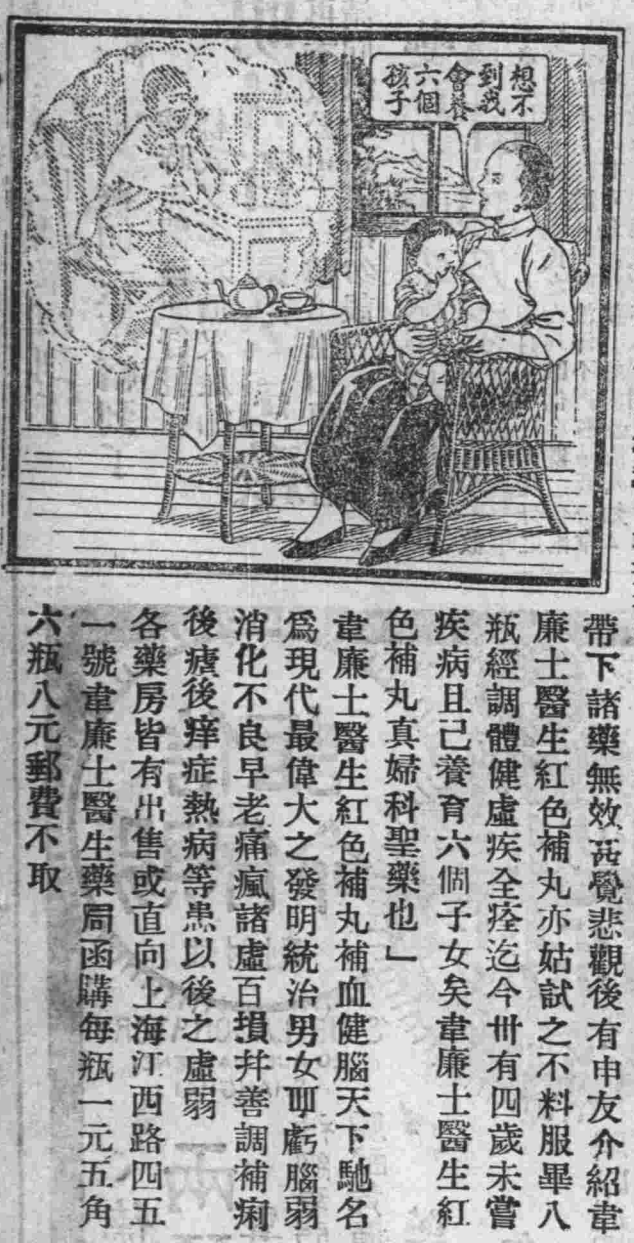 想不
到我
會養
六個
孩子
帶下諸藥無效甚覺悲觀後有申友介紹韋
廉士醫生紅色補丸亦姑試之不料服畢八
瓶經調體健虛疾全痊迄今卅有四歲未嘗
疾病且己養育六個子女矣韋廉士醫生紅
色補丸真婦科聖藥也」
韋廉士醫生紅色補丸補血健腦天下馳名
爲現代最偉大之發明統治男女血虧腦弱
消化不良早老痛瘋諸虛百損幷善調補痢
後瘧後痒症熱病等患以後之虛弱
各藥房皆有出售或直向上海江西路四五
一號韋廉士醫生藥局函購每瓶一元五角
六瓶八元郵費不取